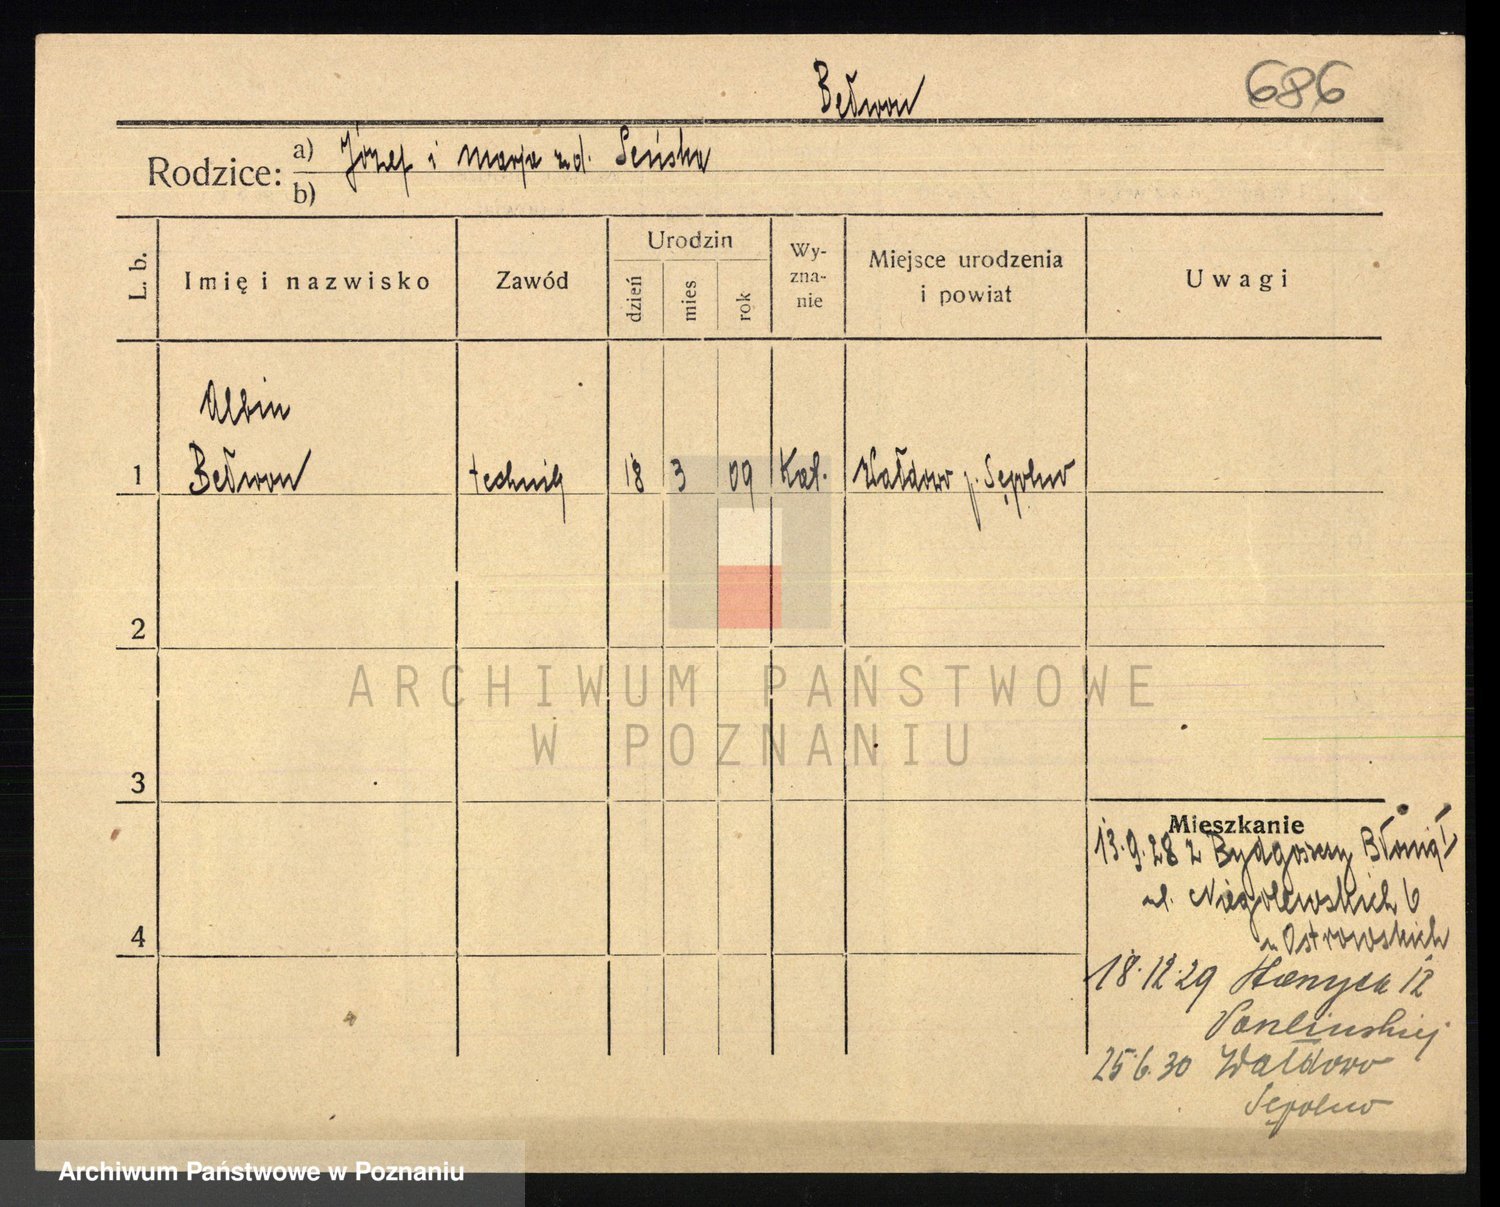 Bełwon
686
Rodzice: a) Józef i Marja zd. Seńska
b)
L. b.
Imię i nazwisko
Zawód
Urodzin
dzień
mies
rok
Wy-
zna-
nie
Miejsce urodzenia
i powiat
Uwagi
Albin
1 Bełwon technik 18 3 09 Kat. Wałdowo p. Sępolno
2
3
4
ARCHIWUM PAŃSTWOWE
W POZNANIU
Mieszkanie
13.9.28 z Bydgoszczy
ul. Niegolewskich 6
u Ostrowskich
18.12.29 12
25.6.30 Wałdowo
Sępolno
Archiwum Państwowe w Poznaniu